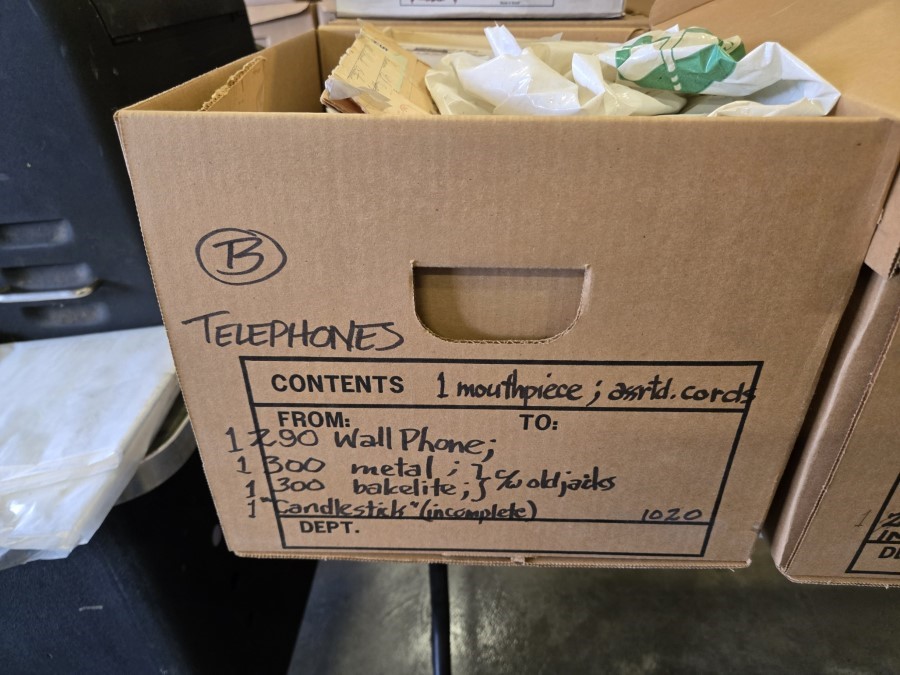 B
TELEPHONES
CONTENTS 1 mouthpiece; assrtd. cords
FROM: TO:
1 290 Wall Phone;
1 300 metal; } c/w old jacks
1 300 bakelite; }
1 "Candlestick" (incomplete) 1020
DEPT.